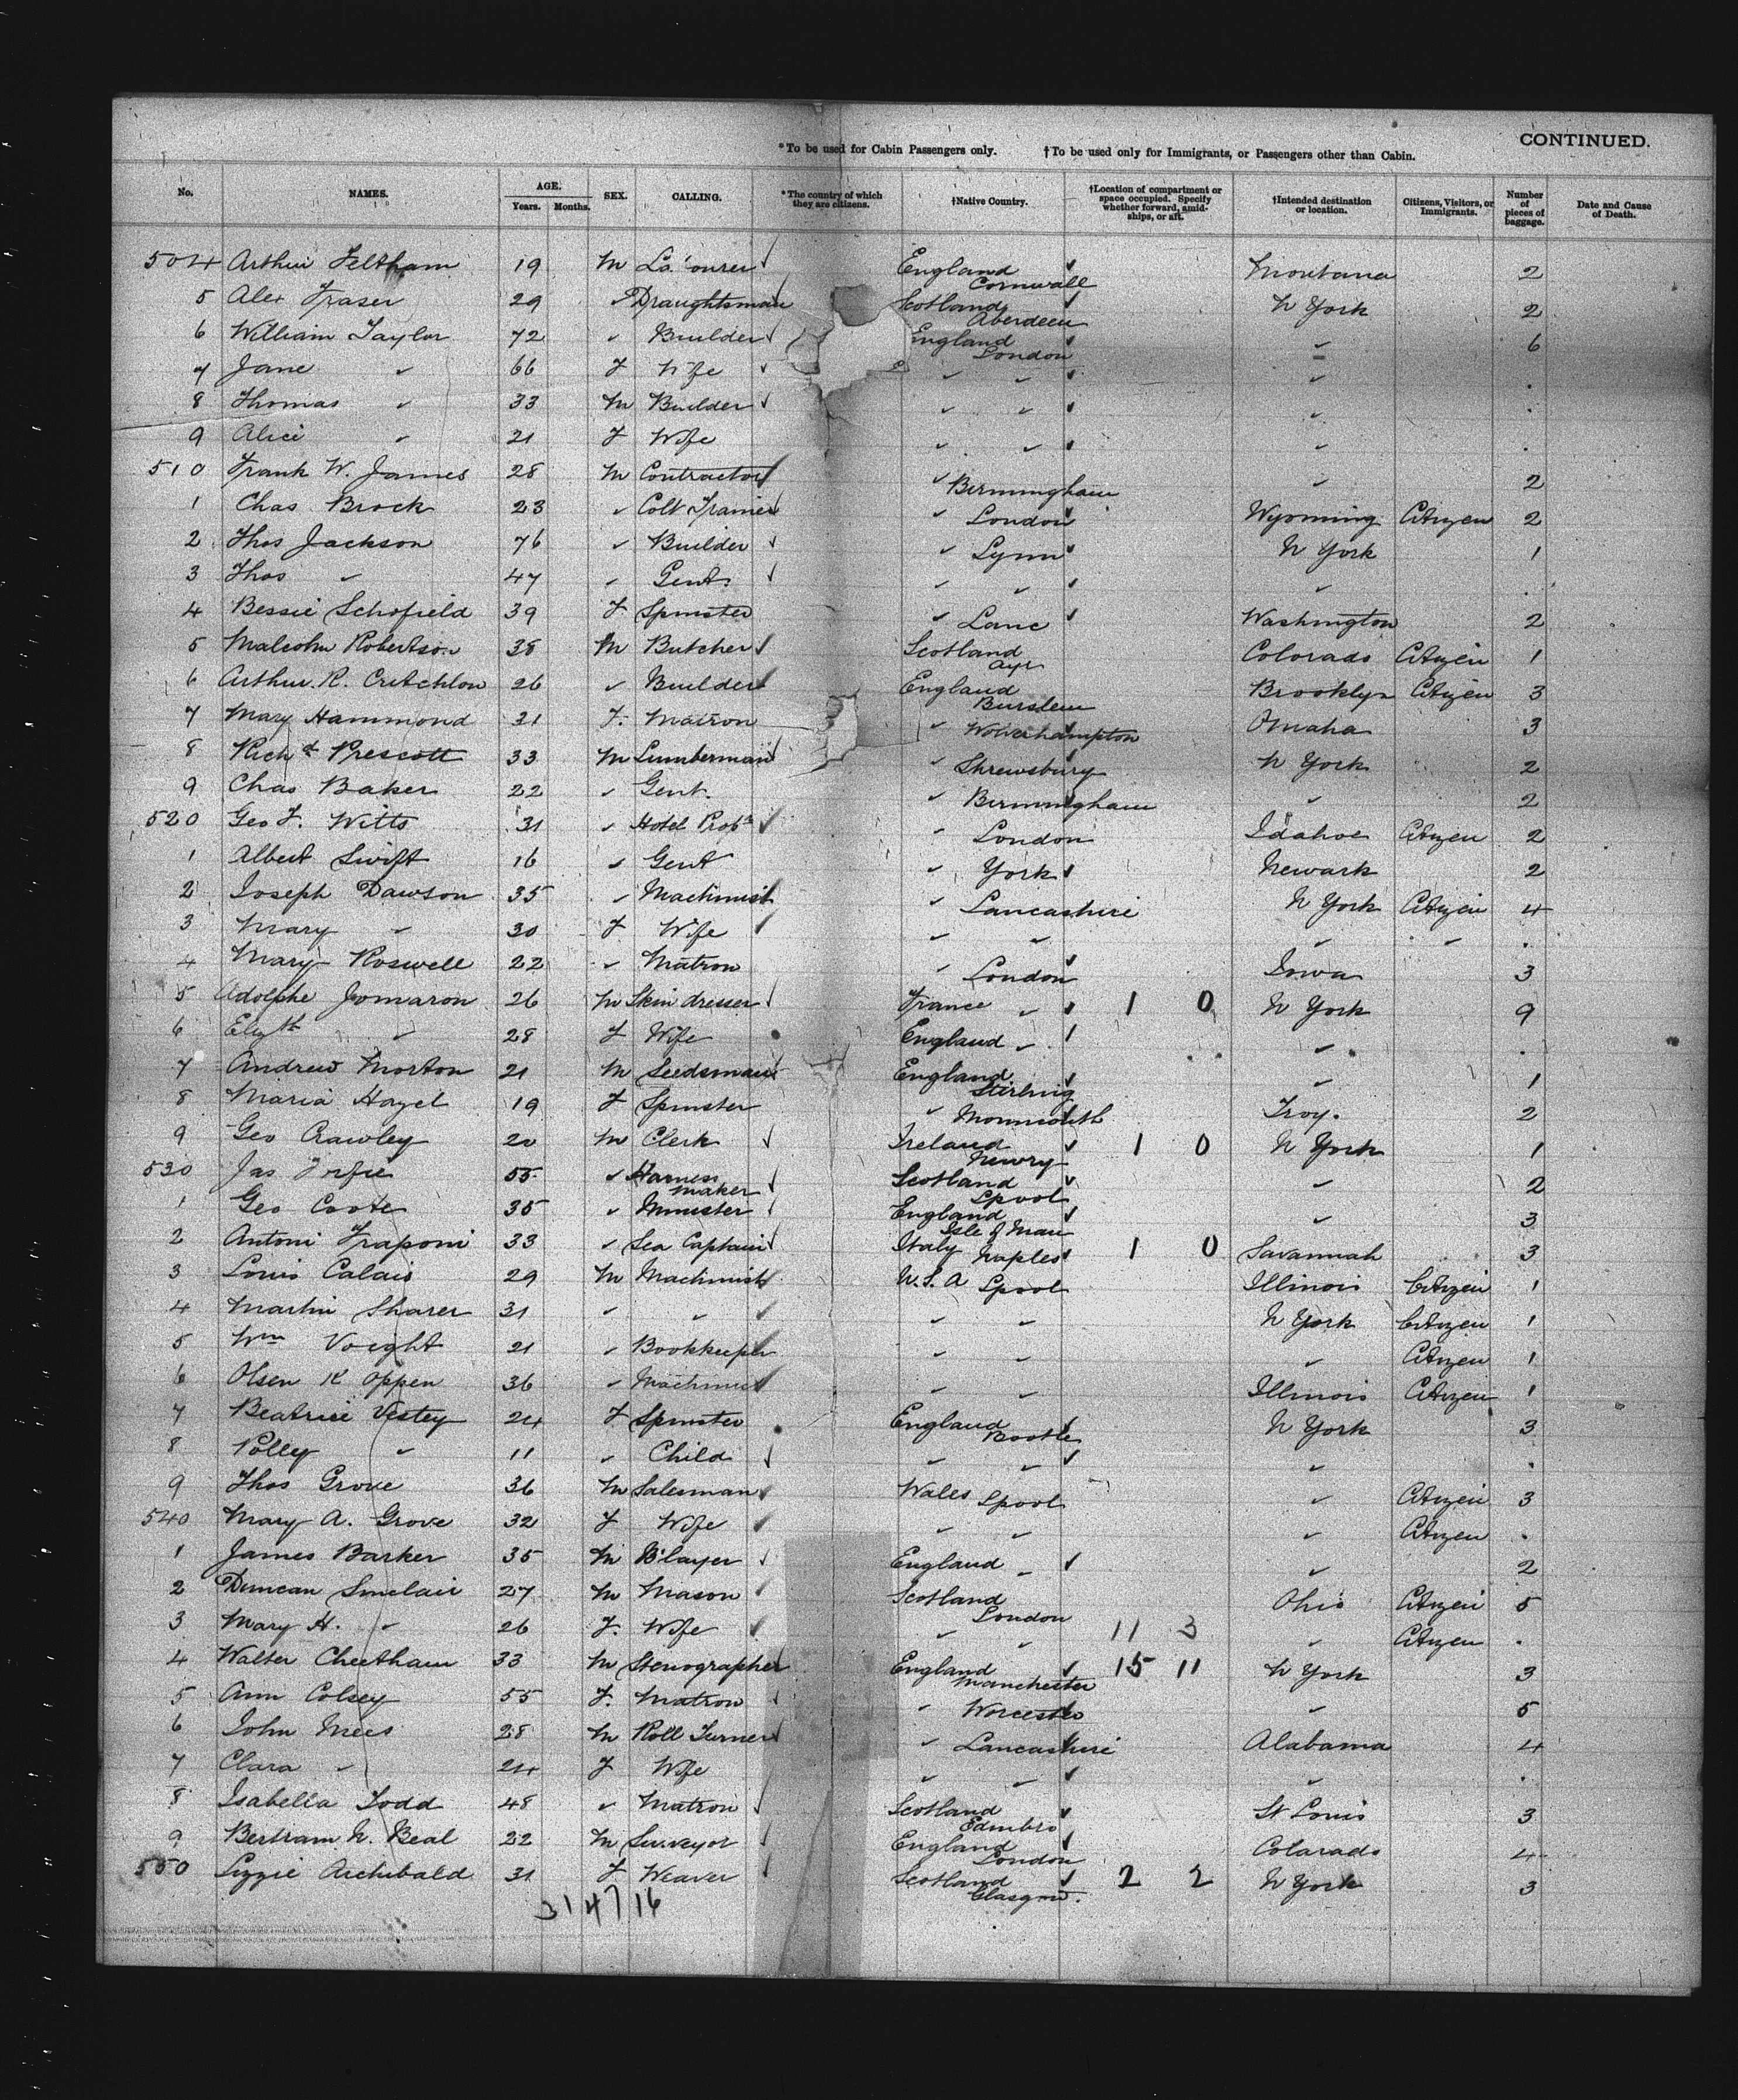 CONTINUED.
*To be used for Cabin Passengers only. †To be used only for Immigrants, or Passengers other than Cabin.
No. NAMES. AGE. Years. Months. SEX. CALLING. *The country of which they are citizens. †Native Country. †Location of compartment or space occupied. Specify whether forward, amidships, or aft. †Intended destination or location. Citizens, Visitors, or Immigrants. Number of pieces of baggage. Date and Cause of Death.
504 Arthur Feltham 19 M La'ourer England Cornwall Montana 2
5 Alex Fraser 29 " Draughtsman Scotland Aberdeen N York 2
6 William Taylor 72 " Builder England London " 6
7 Jane " 66 F Wife " " " .
8 Thomas " 33 M Builder " " " .
9 Alice " 21 F Wife " " " .
510 Frank W. James 28 M Contractor " Birmingham " 2
1 Chas Brock 23 " Colt Trainer " London Wyoming Citizen 2
2 Thos Jackson 76 " Builder " Lynn N York 1
3 Thos " 47 " Gent. " " " .
4 Bessie Schofield 39 F Spinster " Lanc Washington 2
5 Malcolm Robertson 38 M Butcher Scotland Ayr Colorado Citizen 1
6 Arthur R. Critchlow 26 " Builder England Burslem Brooklyn Citizen 3
7 Mary Hammond 31 F. Matron " Wolverhampton Omaha 3
8 Richd Prescott 33 M Lumberman " Shrewsbury N York 2
9 Chas Baker 22 " Gent. " Birmingham " 2
520 Geo F. Witts 31 " Hotel Propr " London Idahoe Citizen 2
1 Albert Swift 16 " Gent " York Newark 2
2 Joseph Dawson 35 " Machinist " Lancashire N York Citizen 4
3 Mary " 30 F Wife " " " " .
4 Mary Roswell 22 " Matron " London Iowa 3
5 Adolphe Jomaron 26 M Skin dresser France " 1 0 N York 9
6 Elizth " 28 F Wife England " " .
7 Andrew Morton 21 M Seedsman England Stirling " 1
8 Maria Hazel 19 F Spinster " Monmouth Troy. 2
9 Geo Crawley 20 M Clerk Ireland Newry 1 0 N York 1
530 Jas 55 " Harness maker Scotland Lpool " 2
1 Geo Coote 35 " Minister England Isle of Man " 3
2 Antoni Fraponi 33 " Sea Captain Italy Naples 1 0 Savannah 3
3 Louis Calais 29 M Machinist U.S.A Lpool Illinois Citizen 1
4 Martin Sharer 31 " " " " N York Citizen 1
5 Wm Voight 21 " Bookkeeper " " " Citizen 1
6 Olsen K Oppen 36 " Machinist " " Illinois Citizen 1
7 Beatrice Vestey 24 F Spinster England Bootle N York 3
8 Polly " 11 " Child " " " .
9 Thos Grove 36 M Salesman Wales Lpool " Citizen 3
540 Mary A. Grove 32 F Wife " " " Citizen .
1 James Barker 35 M B'layer England " " 2
2 Duncan Sinclair 27 M Mason Scotland London Ohio Citizen 5
3 Mary H. " 26 F. Wife " " 11 3 " Citizen .
4 Walter Cheetham 33 M Stenographer England Manchester 15 11 N York 3
5 Ann Colsey 55 F. Matron " Worcester " 5
6 John Mees 28 M Roll Turner " Lancashire Alabama 4
7 Clara " 24 F Wife " " " .
8 Isabella Todd 48 " Matron Scotland Edinbro St Louis 3
9 Bertram N. Beal 22 M Surveyor England London Colorado 4
550 Lizzie Archibald 31 F Weaver Scotland Glasgow. 2 2 N York 3
314716